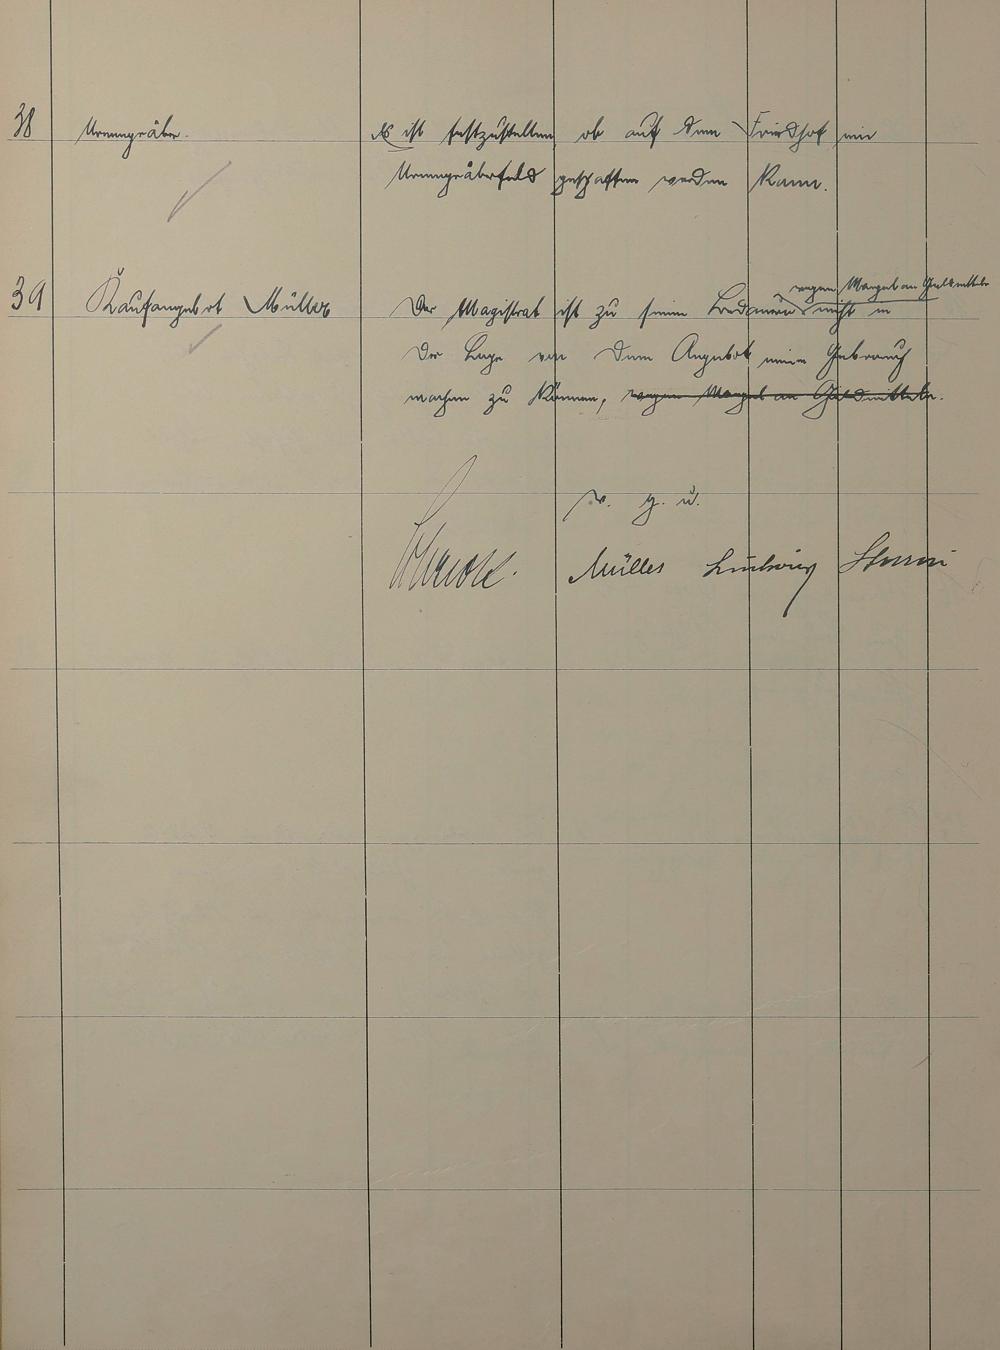 38 Urnengräber. Es ist festzustellen, ob auf dem Friedhof ein
Urnengräberfeld geschaffen werden kann.
wegen Mangel an Geldmitteln
39 Kaufangebot Müller Der Magistrat ist zu seinem Bedauern nicht in
der Lage von dem Angebot einen Gebrauch
machen zu können, wegen Mangel an Geldmitteln.
v. g. u.
Müller Ludwig